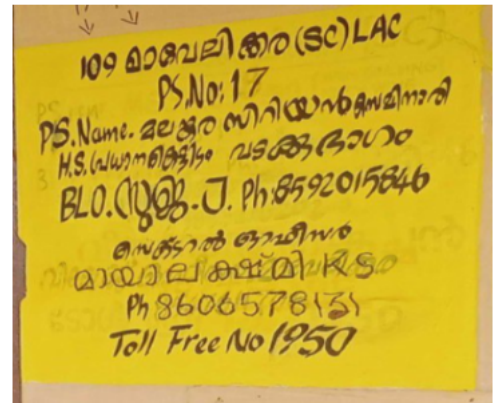 109 മാവേലിക്കര (SC) LAC
PS.No: 17
PS.Name. മലങ്കര സിറിയൻ സെമിനാരി
H.S. പ്രധാനകെട്ടിടം വടക്കുഭാഗം
BLO. സുജ. J. Ph: 8592015846
സെക്ടറൽ ഓഫീസർ
മായാലക്ഷ്മി K S
Ph 8606578131
Toll Free No 1950